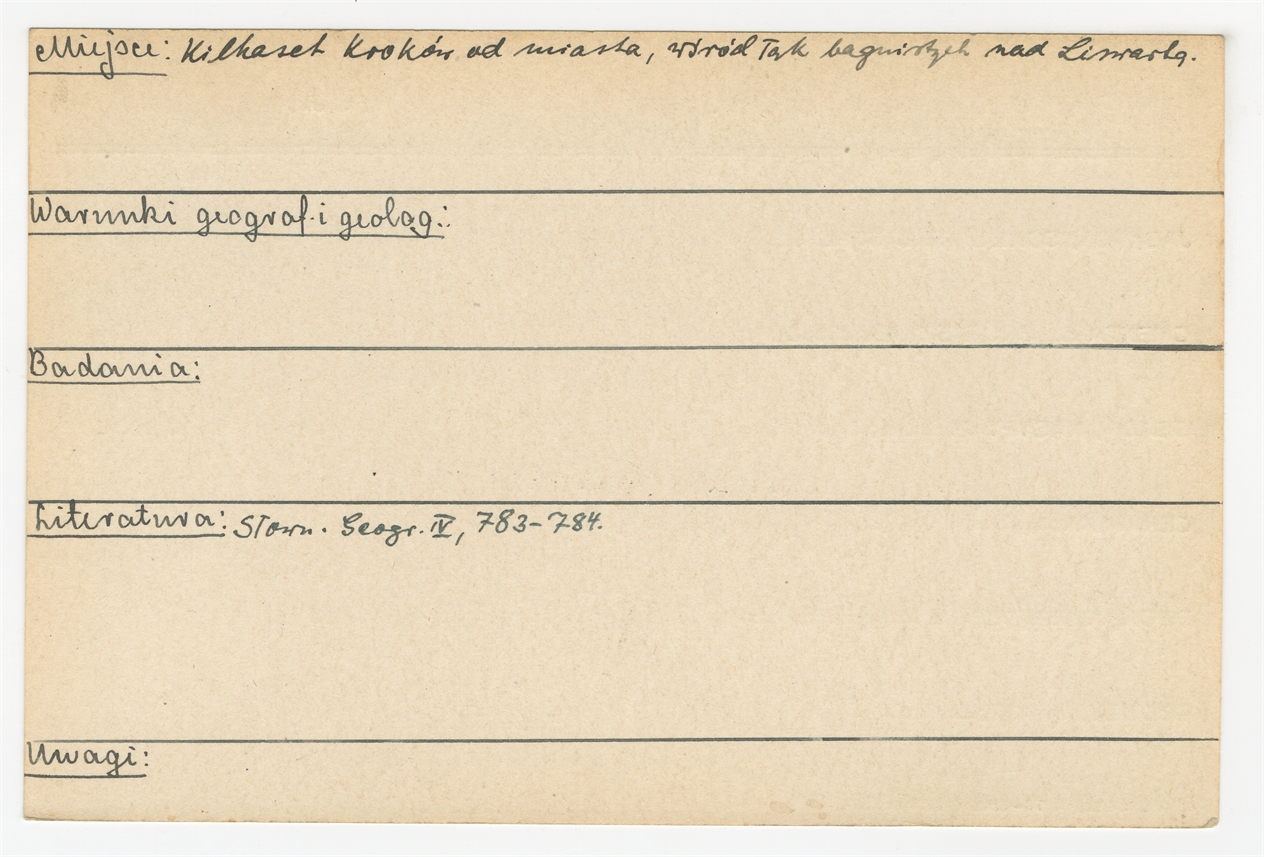 Miejsce: Kilkaset kroków od miasta, wśród łąk bagnistych nad Liswartą.
Warunki geograf. i geolog.:
Badania:
Literatura: Słown. Geogr. IV, 783-784.
Uwagi: